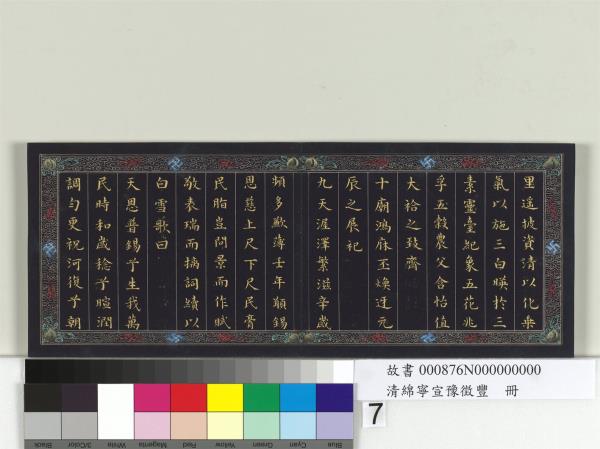 里遥披資清以化乘
氣以施三白暎於三
素靈臺紀象五花兆
孚五穀農父含怡值
大祫之致齊
十廟鴻庥丕煥迓元
辰之展祀
九天渥澤繁滋辛歲
頻多歉薄壬年顒錫
恩慈上尺下尺民膏
民脂豈問景而作賦
敬表瑞而摛詞賡以
白雪歌曰
天恩普錫兮生我萬
民時和歲稔兮暄潤
調勻更祝河復兮朝
故書 000876N000000000
清綿寧宣豫徵豐 冊
7
Black
3/Color
White
Magenta
Red
Yellow
Green
Cyan
Blue